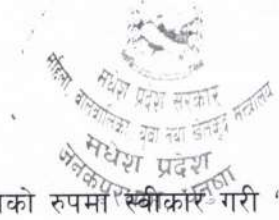 मधेश प्रदेश सरकार
महिला, बालबालिका, युवा तथा खेलकुद मन्त्रालय
मधेश प्रदेश
को रुपमा स्वीकार गरी